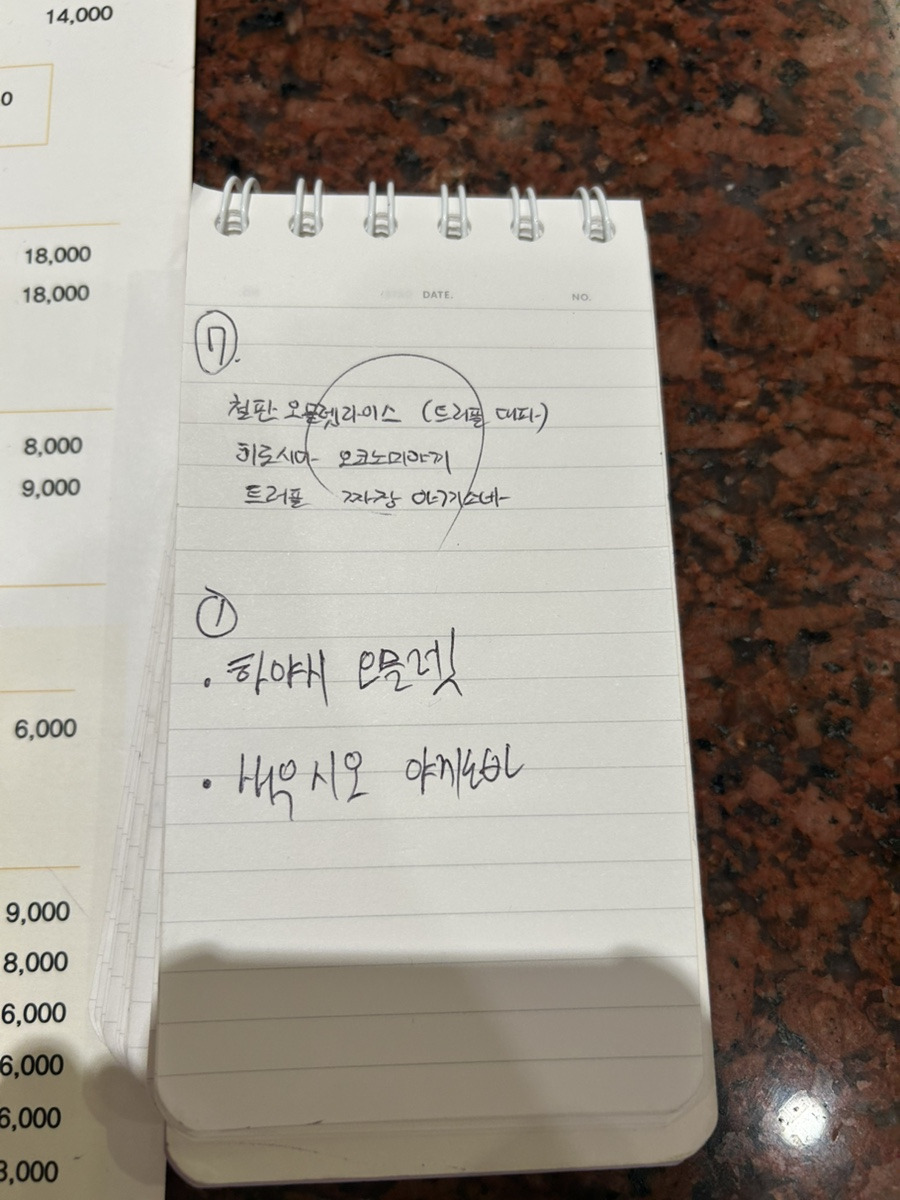 14,000
0
18,000
18,000
8,000
9,000
6,000
9,000
8,000
6,000
6,000
6,000
3,000
DATE. NO.
7.
철판 오믈렛라이스 (트러플 대파)
히로시마 오코노미야끼
트러플 짜장 야끼소바
1
· 하야시 오믈렛
· 시오 야끼소바